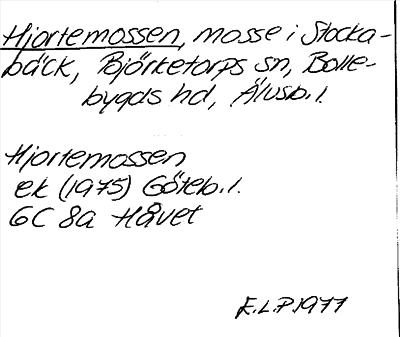 Hjortemossen, mosse i Stocka-
bäck, Björketorps sn, Bolle-
bygds hd, Älvsb. l.
Hjortemossen
ek (1975) Göteb. l.
6C 8a Håvet
E.L.P. 1977